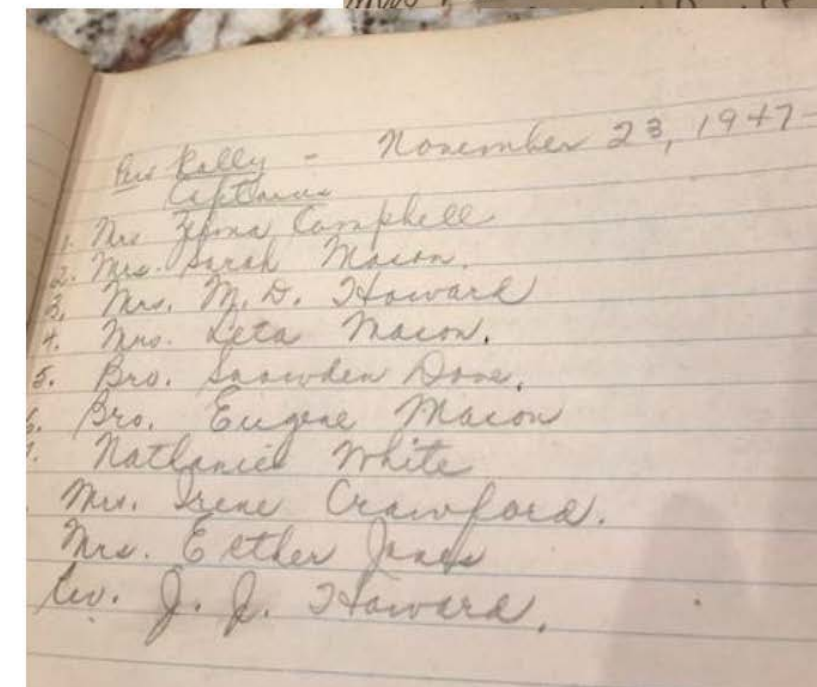 Rally - November 23, 1947-
Captains
1. Mrs Zelma Campbell
2. Mrs. Sarah Macon.
3. Mrs. M. D. Howard
4. Mrs. Leta Macon.
5. Bro. Snowden Dove.
6. Bro. Eugene Macon
7. Nathaniel White
Mrs. Irene Crawford.
Mrs. Esther Jones
Rev. J. J. Howard.